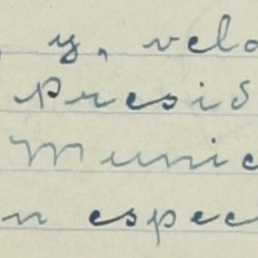 , y, velo
Presid
Munic
n espec